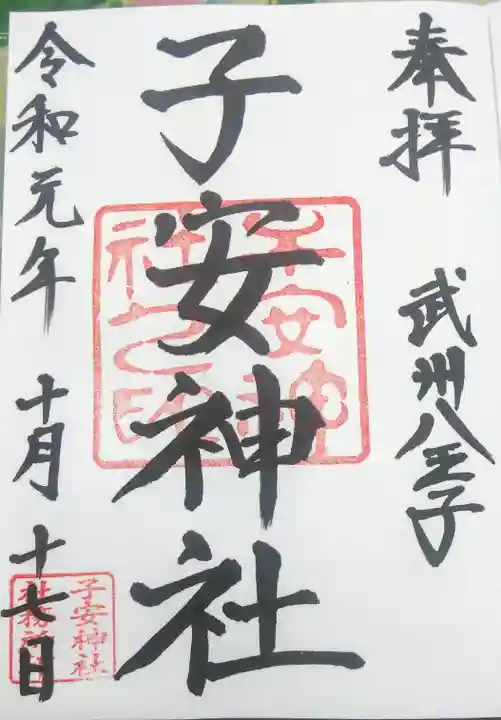 奉拝
武州八王子
子安神社
子安神社之印
令和元年 十月 十七日
子安神社
社務所